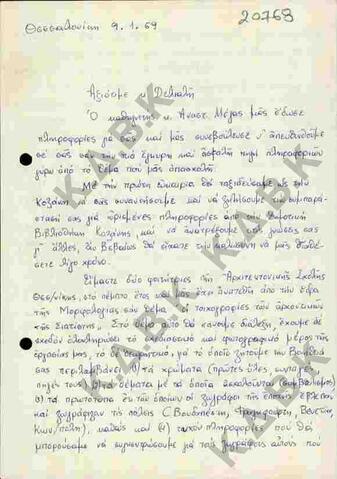 Θεσσαλονίκη 9.1.69
20768
Αξιότιμε κ Δελιαλή
Ο καθηγητής κ Αναστ. Μέγας μας έδωσε
πληροφορίες για σας και μας συνεβούλευσε ν' απευθυνθούμε
σέ σάς σαν την πιό έγκυρη και ασφαλή πηγή πληροφοριών
γύρω από το θέμα που μάς απασχολεί.
Μέ την πρώτη ευκαιρία θα ταξιδεύσουμε ως την
Κοζάνη να σάς συναντήσουμε και να ζητήσουμε την συμπαρά-
στασή σας για ορισμένες πληροφορίες από την Δημοτική
Βιβλιοθήκη Κοζάνης και να ανατρέξουμε στις γνώσεις σας
γι' άλλες, άν βεβαίως θα είχατε την καλωσύνη να μάς διαθέ-
σετε λίγο χρόνο.
Είμαστε δύο φοιτήτριες της Αρχιτεκτονικής Σχολής
Θεσ/νίκης, στο πέμπτο έτος και μας έχει ανατεθεί από την έδρα
της Μορφολογίας σαν θέμα "οι τοιχογραφίες των αρχοντικών
της Σιατίστης". Στο θέμα αυτό θα κάνουμε διάλεξη, έχουμε δε
σχεδόν ολοκληρώσει το σχεδιαστικό και φωτογραφικό μέρος της
εργασίας μας, το δε θεωρητικό, για το οποίο ζητούμε την βοήθειά
σας περιλαμβάνει: 1) τα χρώματα (πρώτες ύλες,
2) τα θέματα με τα οποία ασχολούνται (συμβολισμός)
3) τα πρωτότυπα εκ των οποίων οι ζωγράφοι της εποχής έβλεπαν
και ζωγράφιζαν τις πόλεις (Βουδαπέστη, Φραγκφούρτη, Βενετία,
Κων/πολη) καθώς και (4) τυχόν πληροφορίες που θα
μπορούσαμε να συγκεντρώσουμε για τους ζωγράφους αυτούς που
ΚΑΒΚ